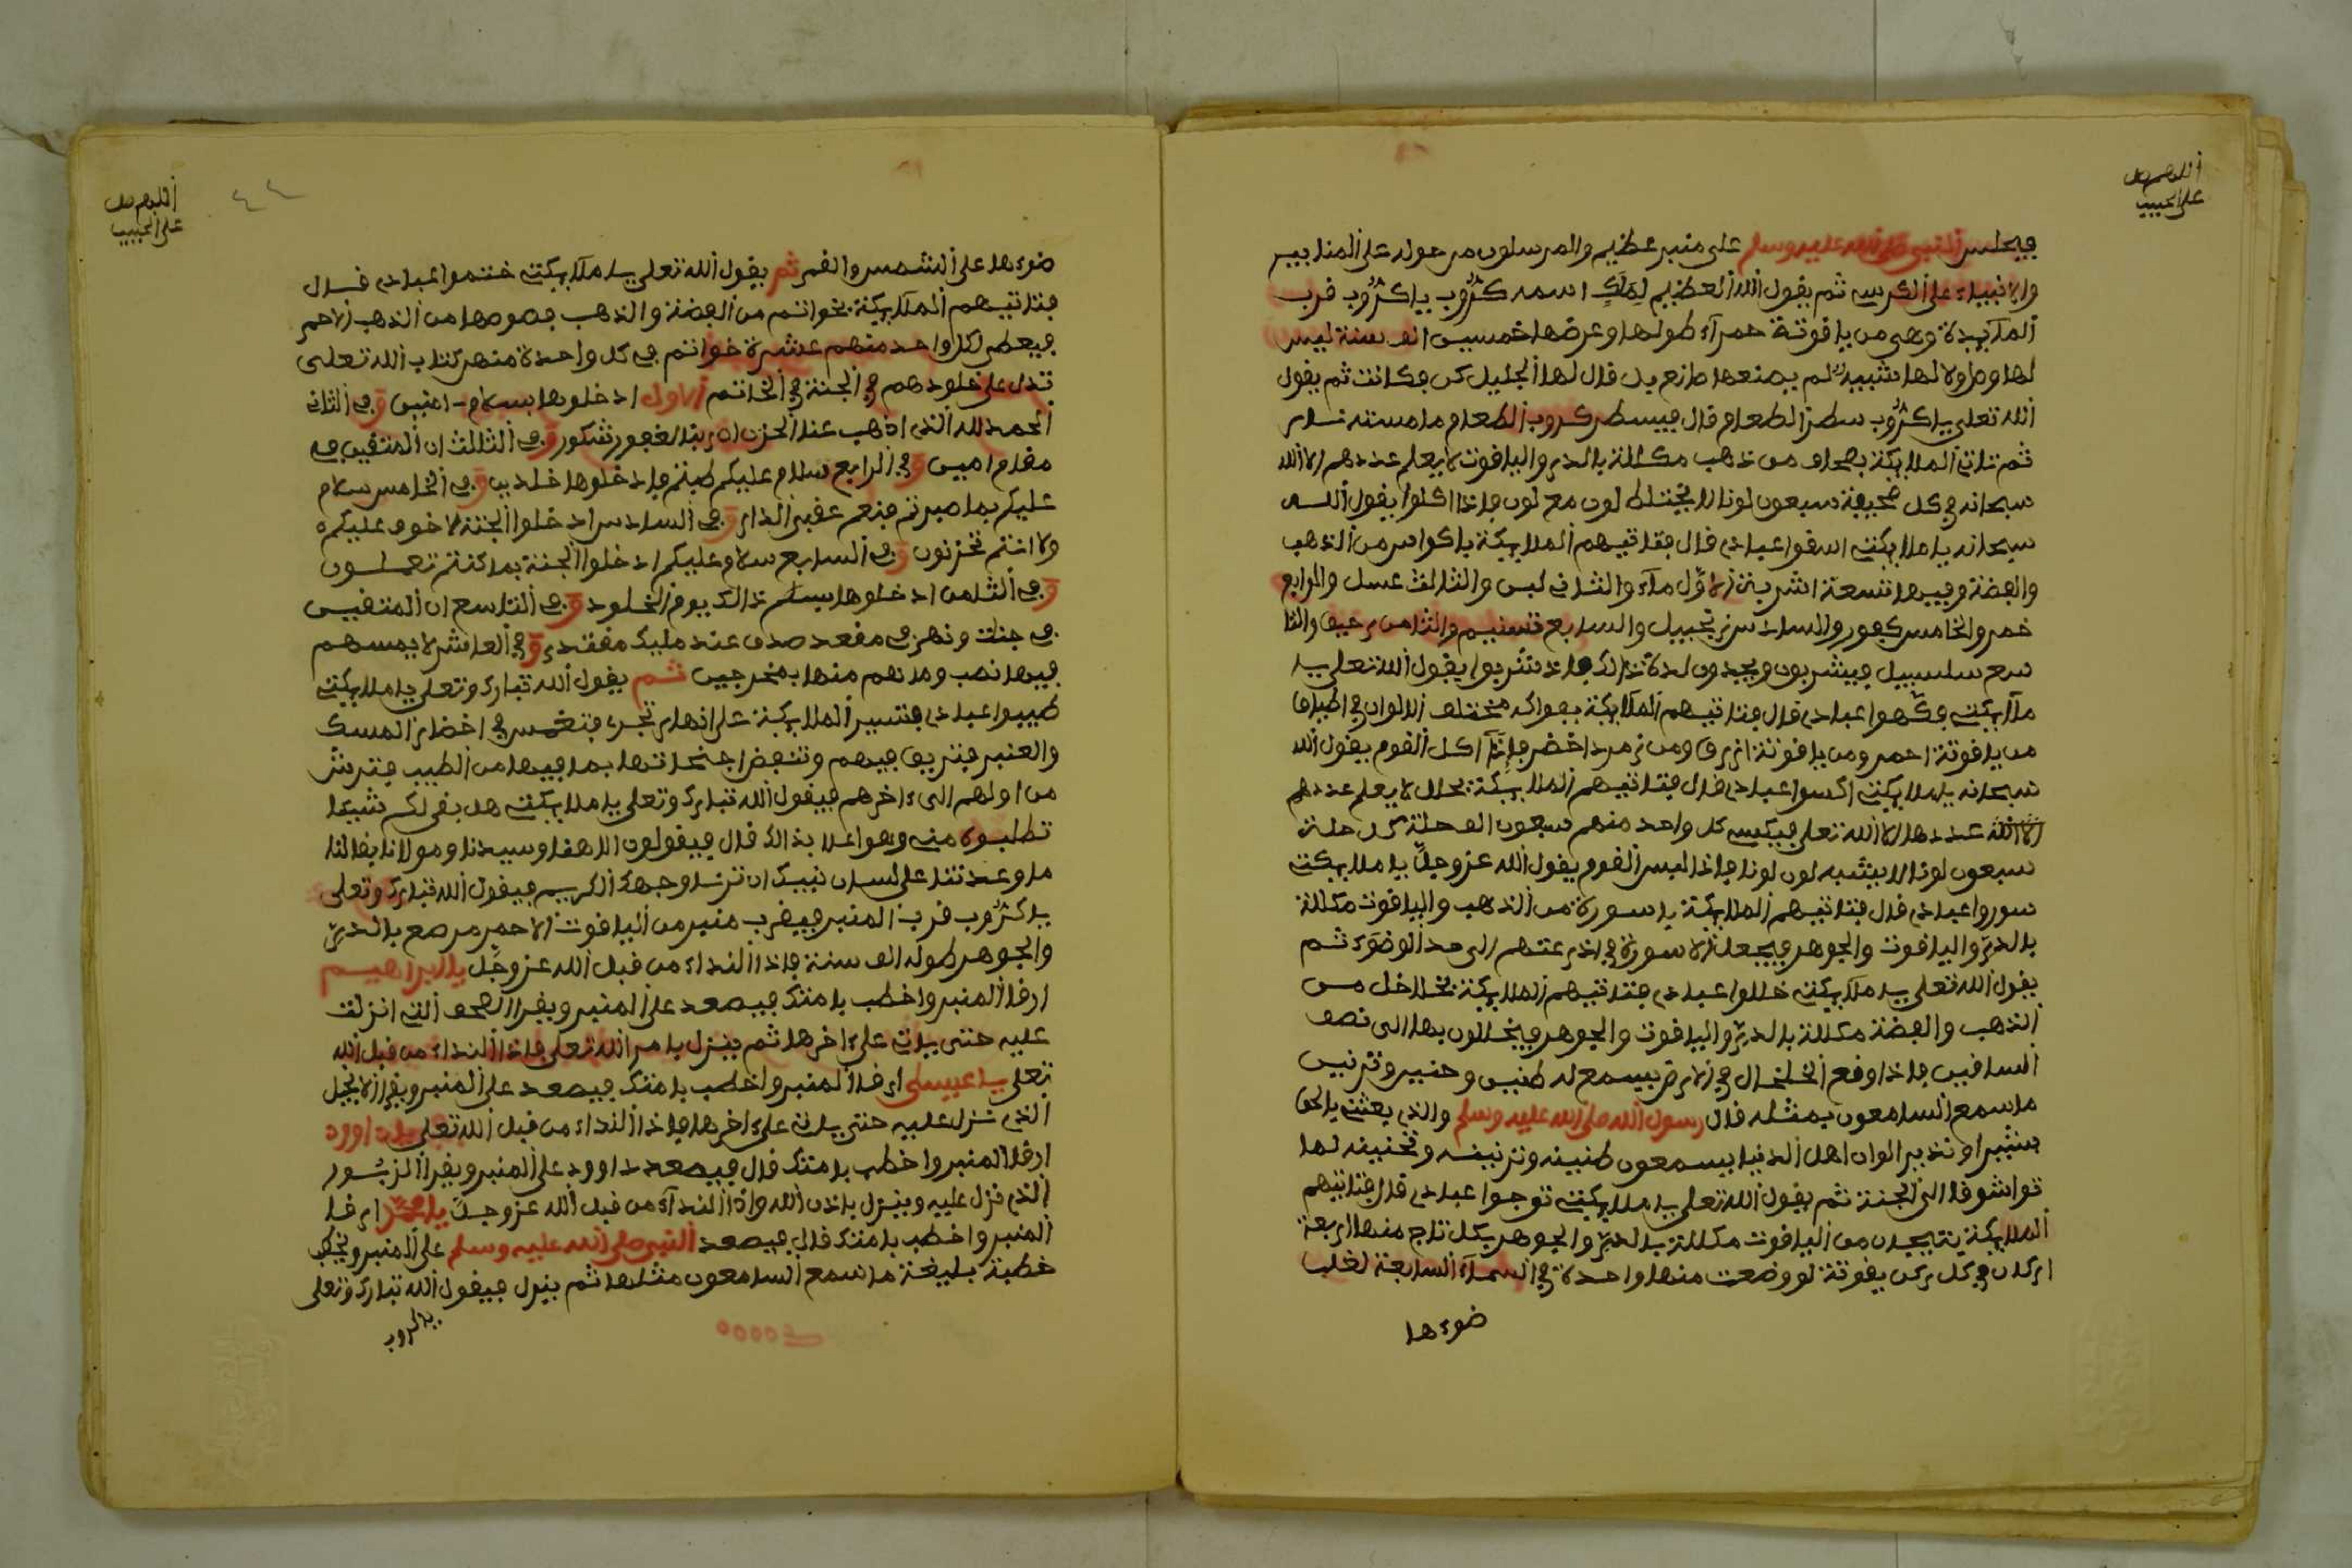 أللهم صل
على الحبيب
فيجلس النبي صلى الله عليه وسلم على منبر عظيم والمرسلون من حوله على المنابير
والانبياء على الكرسي ثم يقول الله العظيم لملك اسمه كرّوب ياكرّوب قرب
ألمآيدة وهي من ياقوتة حمرآء طولها وعرضها خمسين الف سنة ليس
لها وصل ولا لها شبيه لم يصنعها صانع بل قال لها الجليل كن فكانت ثم يقول
الله تعلى ياكرّوب سطر الطعام قال فيسطر كروب الطعام ما مسته نار
ثم تاتي الملايكة بصحاف من ذهب مكللة بالدر والياقوت لا يعلم عددهم الا الله
سبحانه في كل صحيفة سبعون لونا لا يختلط لون مع لون فاذا اكلوا يقول الله
سبحانه يا ملايكتي اسقوا عبادي قال فتاتيهم الملايكة باكواس من الذهب
والفضة وفيها تسعة اشربة الاوّل مآء والثاني لبن والثالث عسل والرابع
خمر والخامس كفور والسادس زنجبيل والسابع تسنيم والثامن رحيق والتا
سع سلسبيل فيشربون ويجدون لذة ذالك فاذ شربوا يقول الله تعلى يا
ملآيكتي فكّهوا عبادي قال فتاتيهم الملآيكة بفواكه مختلف الالوان في اطباق
من ياقوتة احمر ومن ياقوتة ازرق ومن زمرد اخضر فإذآ اكل القوم يقول الله
سبحانه يا ملايكتي اكسوا عبادي قال فتاتيهم الملايكة بحلل لا يعلم عددهم
الا الله عددها الا الله تعلى فيكسى كل واحد منهم سبعون الف حلة كل حلة
سبعون لونا لا يشبه لون لونا فاذا لبس القوم يقول الله عز وجلّ يا ملايكتي
سوروا عبادي قال فتاتيهم الملايكة ياسورة من الذهب والياقوت مكللة
بالدرّ والياقوت والجوهر فيجعل الاسورة في اذرعتهم الى حد الوضوء ثم
يقول الله تعلى يا ملآيكتي خللوا عبادي فتاتيهم الملايكة بخلاخل من
الذهب والفضة مكللة بالدرّ والياقوت والجوهر فيخللون بها الى نصف
السافين فاذا وقع الخلخال في الارض يسمع له طنين وحنين وترنين
ما سمع السامعون بمثله قال رسول الله صلى الله عليه وسلم والذي بعثني بالحق
بشيرا ونذيرا لو ان اهل الدنيا يسمعون طنينه وترنينه وتحنينه لما
تواشوقا الى الجنة ثم يقول الله تعلى يا ملايكتي توجوا عبادي قال فتاتيهم
الملايكة بتيجان من الياقوت مكللة بالدرّ والجوهر بكل تاج منها اربعة
اركان في كل ركن يقوتة لو وضعت منها واحدة في السمآء السابعة لغلب
ضوءها
أللهم صل
على الحبيب
٤٤
ضوءها على الشمس والقمر ثم يقول الله تعلى يا ملآيكتي ختموا عبادي قال
فتاتيهم الملآيكة بخواتم من الفضة والذهب فصوصها من الذهب الاحمر
فيعطى لكل واحد منهم عشرة خواتم في كل واحدة منهن كتاب الله تعلى
تدل على خلودهم في الجنة في الخاتم الاول ادخلوها بسلام ءامنين وفي الثاني
الحمد لله الذي اذهب عنا الحزن ان ربنا لغفور شكور وفي الثالث ان المتقين في
مقام امين وفي الرابع سلام عليكم طبتم فادخلوها خلدين وفي الخامس سلام
عليكم بما صبرتم فنعم عقبى الدار وفي السادس ادخلوا الجنة لا خوف عليكم
ولا انتم تحزنون وفي السابع سلام عليكم ادخلوا الجنة بما كنتم تعملون
وفي الثامن ادخلوها بسلم ذالك يوم الخلود وفي التاسع ان المتقين
في جنات ونهر في مقعد صدق عند مليك مقتدر وفي العاشر لا يمسهم
فيها نصب وما هم منها بمخرجين ثم يقول الله تبارك وتعلى يا ملايكتي
طيبوا عبادي فتسير الملايكة على انهار تجري فتغمس في اخضار المسك
والعنبر فتريف فيهم وتنفض اجنحاتها بما فيها من الطيب فترش
من اولهم الى ءاخرهم فيقول الله تبارك وتعلى يا ملايكتي هل بقى لكم شيئا
تطلبوه مني وهو اعلا بذالك قال فيقولون الاهنا وسيدنا ومولانا بقا لنا
ما وعدتنا على لسان نبيك ان ترنا وجهك الكريم فيقول الله تبارك وتعلى
ياكرّوب قرب المنبر فيقرب منبر من الياقوت الاحمر مرصع بالدرّ
والجوهر طوله الف سنة فاذا النداء من قبل الله عز وجل يا ابراهيم
ارقا المنبر واخطب بامتك فيصعد على المنبر ويقرا الصحف التي انزلت
عليه حتى ياتي على ءاخرها ثم ينزل بامر الله تعلى فاذا النداء من قبل الله
تعلى يا عيسى ارقا المنبر واخطب بامتك فيصعد على المنبر ويقرا الانجيل
الذي نزل عليه حتى ياتي على ءاخرها فاذا النداء من قبل الله تعلى يا داوود
ارقا المنبر واخطب بامتك قال فيصعد داوود على المنبر ويقرا الزبور
الذي نزل عليه وينزل باذن الله واذا النداء من قبل الله عز وجل يا محمّد ارقا
المنبر واخطب بامتك قال فيصعد النبي صلى الله عليه وسلم على المنبر ويخطب
خطبة بليغة ما سمع السامعون مثلها ثم ينزل فيقول الله تبارك وتعلى
ياكروب